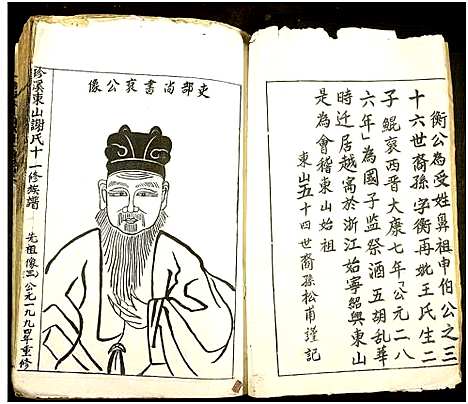 衡公為受姓鼻祖申伯公之三
十六世裔孫字衡再妣王氏生二
子鯤裒西晋大康七年「公元二八
六年」為國子监祭酒五胡亂華
時迁居越寓於浙江始寧紹興東山
是為會稽東山始祖
東山五十四世裔孫松甫謹记
吏部尚書裒公像
珍溪東山謝氏十一修族譜
先祖像
公元一九九四年重修